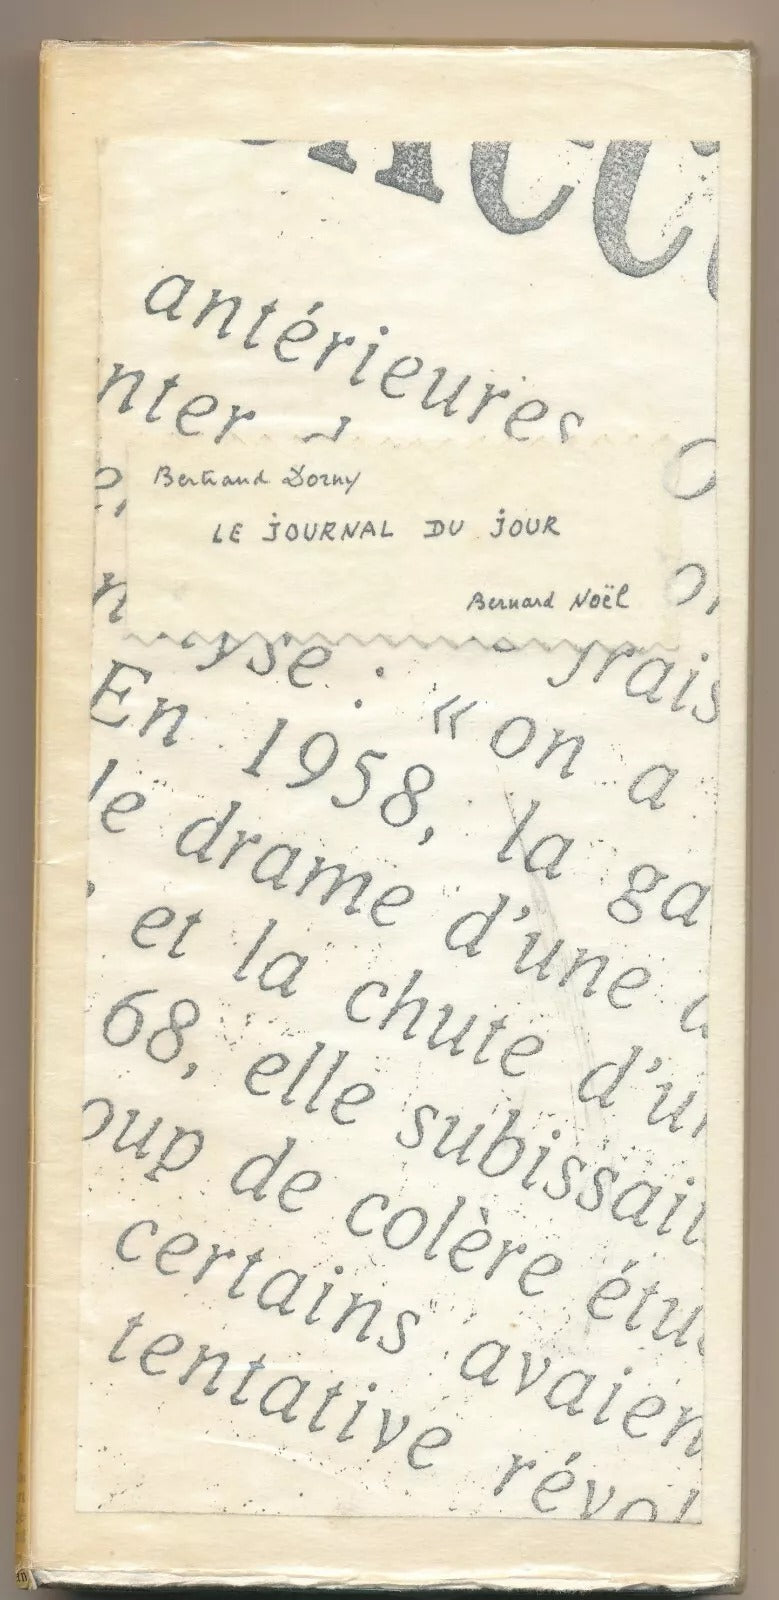 antérieures
nter
e,
Bertrand Dorny
LE JOURNAL DU JOUR
Bernard Noël
n
yse : « on a
rais
En 1958, la ga
le drame d'une
, et la chute d'un
68, elle subissait
oup de colère étu
certains avaien
tentative révol